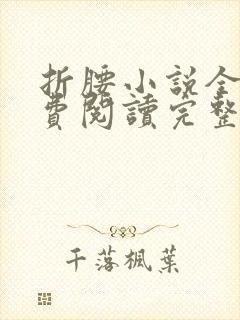 折腰小説全
費閱讀完整
千落楓葉